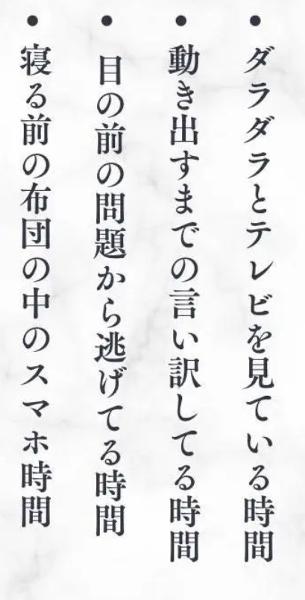 • ダラダラとテレビを見ている時間
• 動き出すまでの言い訳してる時間
• 目の前の問題から逃げてる時間
• 寝る前の布団の中のスマホ時間